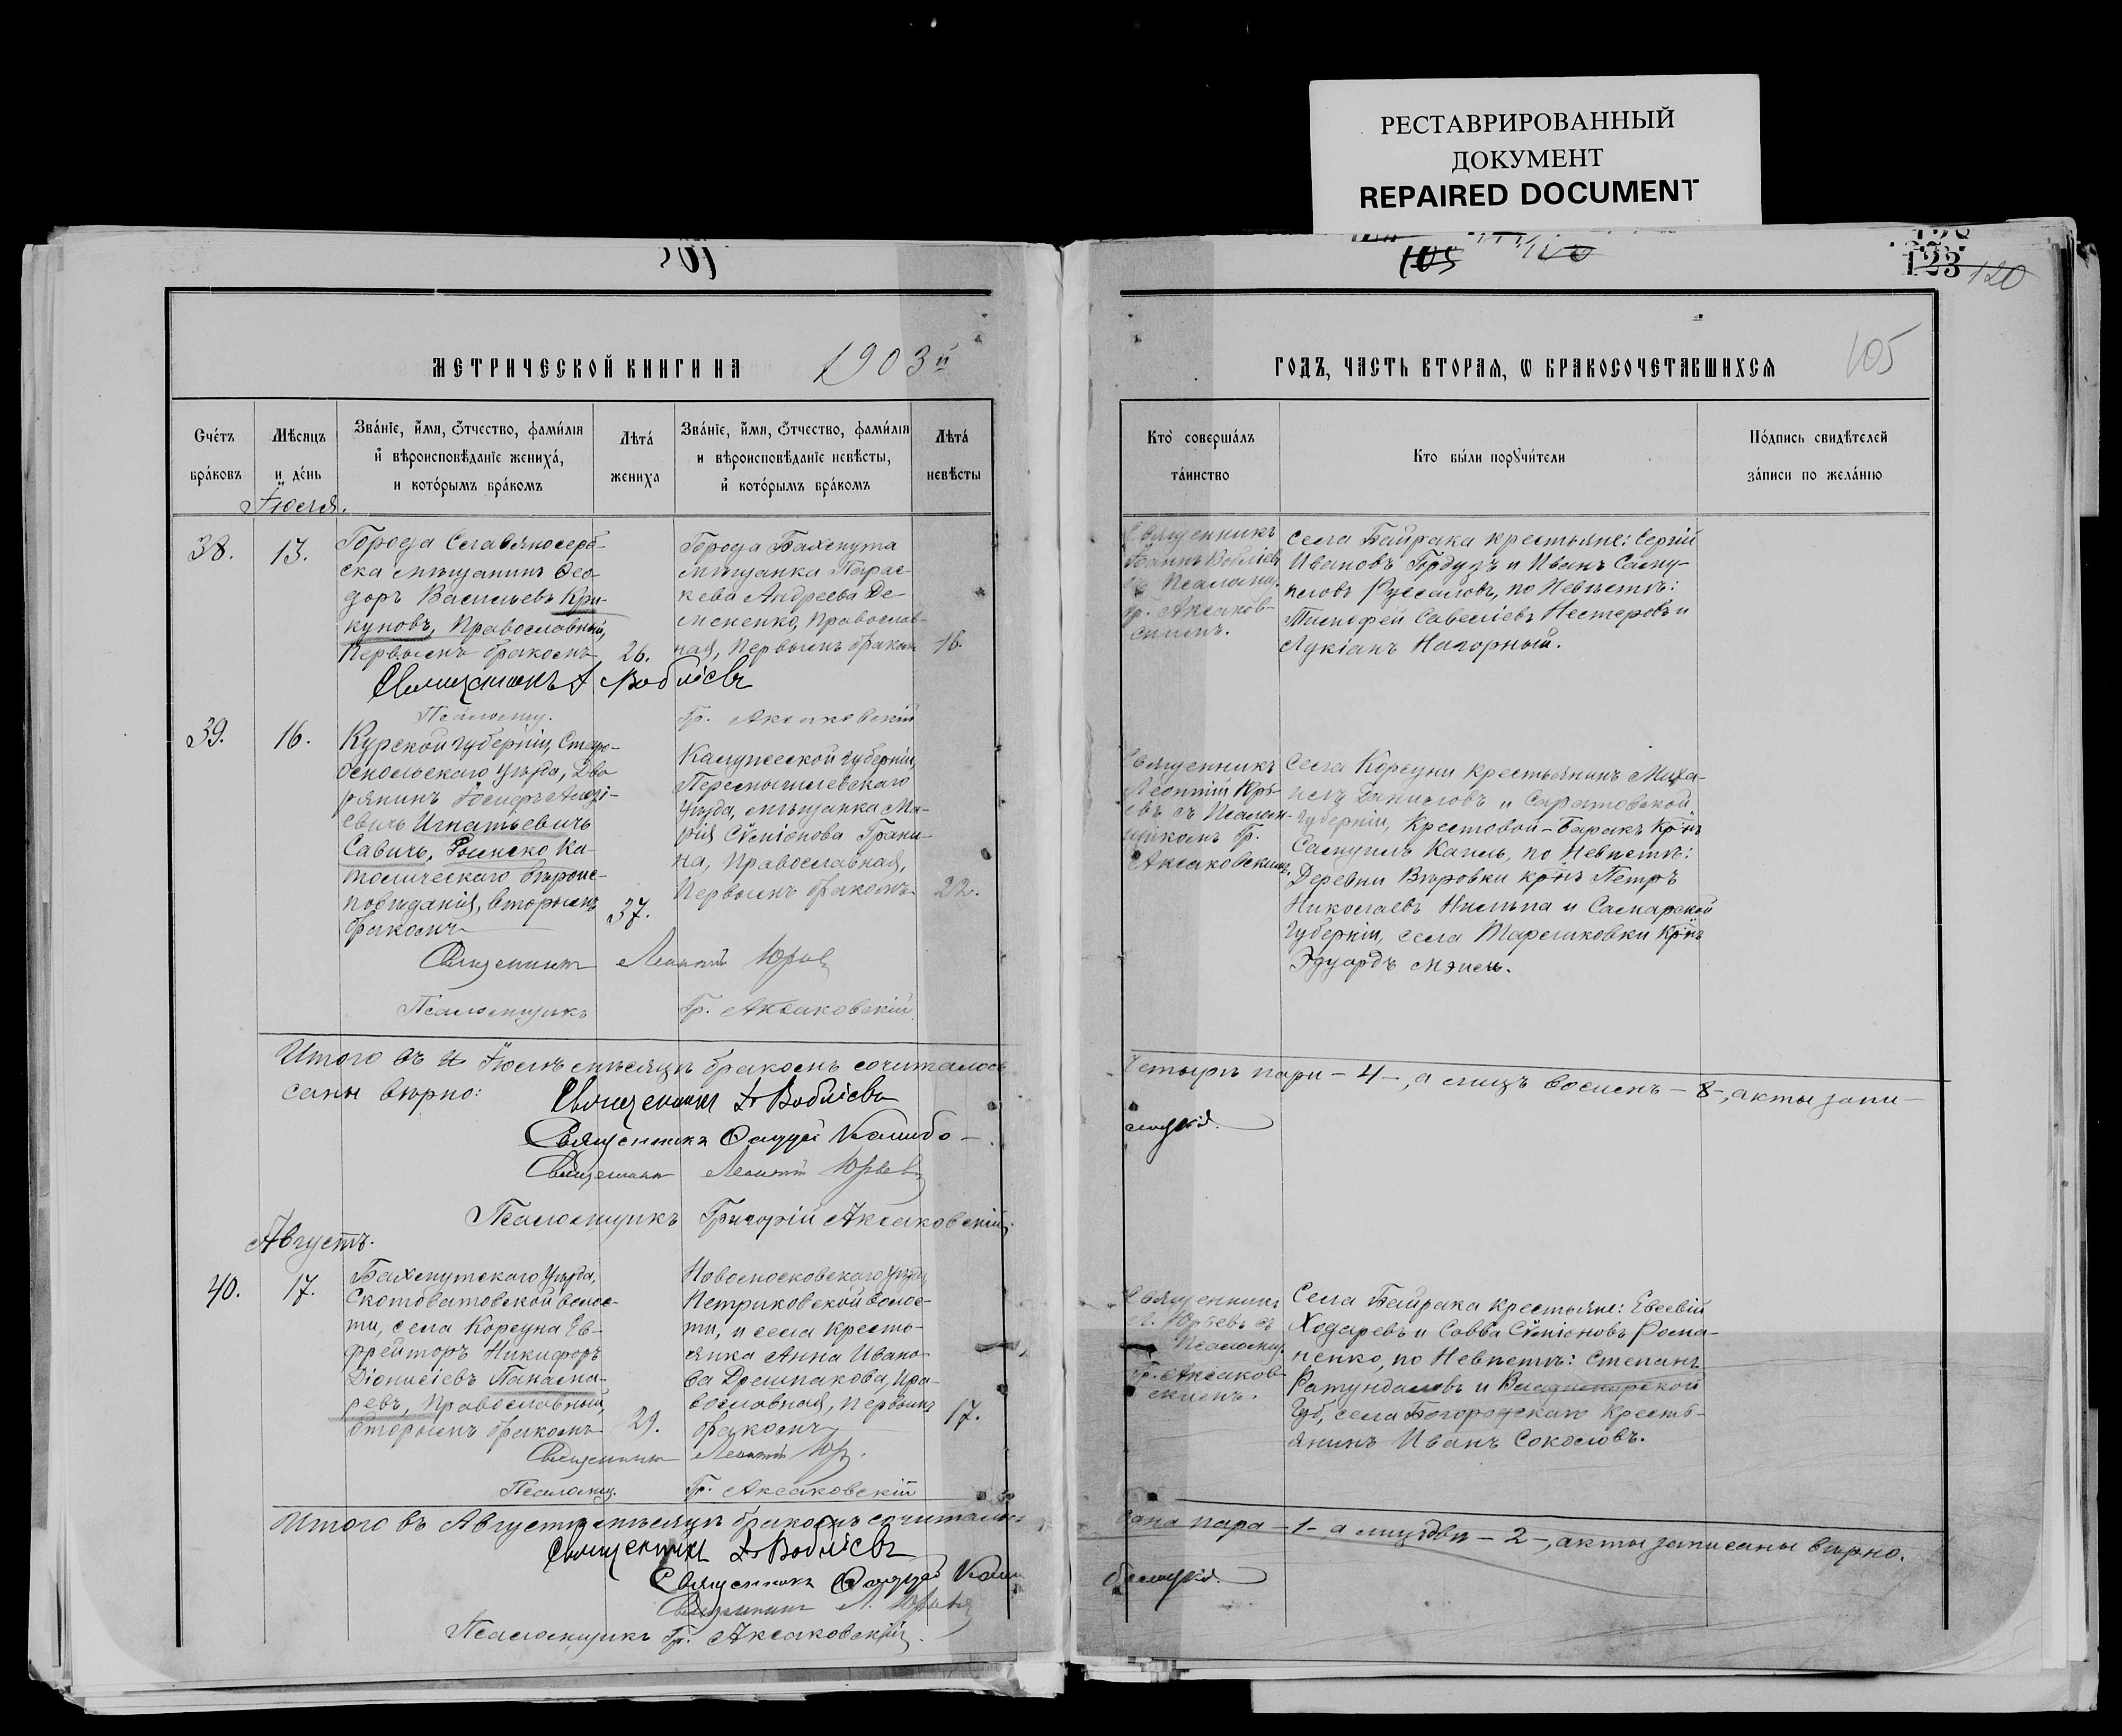 РЕСТАВРИРОВАННЫЙ
ДОКУМЕНТ
REPAIRED DOCUMENT
501
105
120
123
120
105
МЕТРИЧЕСКОЙ КНИГИ НА 1903 й
ГОДЪ, ЧАСТЬ ВТОРАЯ, Ѡ БРАКОСОЧЕТАВШИХСЯ
Счётъ браковъ
Мѣсяцъ и день
Званіе, имя, отчество, фамилія
и вѣроисповѣданіе жениха,
и которымъ бракомъ
Лѣта жениха
Званіе, имя, отчество, фамилія
и вѣроисповѣданіе невѣсты,
и которымъ бракомъ
Лѣта невѣсты
Кто совершалъ таинство
Кто были поручители
Подпись свидѣтелей
записи по желанію
Іюля.
38.
13.
Города Славяносерб-
ска мѣщанинъ Ѳео-
доръ Васильевъ Кри-
куновъ, Православный,
Первымъ бракомъ
26.
Города Бахмута
мѣщанка Парас-
кева Андреева Де-
мененко, Православ-
ная, Первымъ бракомъ
16.
Священникъ
Іоаннъ Воблıевъ
съ Псаломщ.
Гр. Аксаков-
скимъ.
Села Байрака крестьяне: Сергій
Ивановъ и Иванъ Саму-
иловъ Руссаловъ, по Невѣстѣ:
Тимофей Савеліевъ Нестеровъ и
Лукіанъ Нагорный.
Священникъ І Воблıевъ
Псаломщ. Гр. Аксаковскій
39.
16.
Курской губерніи, Старо-
оскольскаго уѣзда, Дво-
рянинъ Іосифъ
Игнатьевичъ
Савичъ, Римско Ка-
толическаго Вѣроис-
повѣданія, вторымъ
бракомъ
37.
Калужской губерніи,
Перемышлевскаго
уѣзда, мѣщанка Ма-
рія Сѵмеонова Грани-
на, Православная,
Первымъ бракомъ
22.
Священникъ
Леонтій Юрь-
евъ съ Псалом-
щикомъ Гр.
Аксаковскимъ.
Села Корсуни крестьянинъ Миха-
илъ Даниловъ и Саратовской
губерніи, Крестовой-Баракъ кр-нъ
Самуилъ Кагель, по Невѣстѣ:
Деревни Вѣровки кр-нъ Петръ
Николаевъ и Самарской
губерніи, села кр-нъ
Эдуардъ
Священникъ Леонтій Юрьев
Псаломщикъ Гр. Аксаковскій
Итого въ Іюлѣ мѣсяцѣ бракомъ сочиталось
Четыре пары - 4 -, а лицъ восемь - 8 -, акты запи-
саны вѣрно:
Священникъ І. Воблıевъ
Священникъ Ѳаддей
Священникъ Леонтій Юрьев
Псаломщикъ Григорій Аксаковскій.
Августъ.
40.
17.
Бахмутскаго уѣзда,
Скотоватовской волос-
ти, села Корсуна Еф-
рейторъ Никифоръ
Діонисіевъ Панама-
ревъ, Православный,
вторымъ бракомъ
29.
Новомосковскаго уѣзда,
Петриковской волос-
ти, и села кресть-
янка Анна Ивано-
ва Дрешпакова, Пра-
вославная, первымъ
бракомъ
17.
Священникъ
Л. Юрьевъ съ
Псаломщ.
Гр. Аксаков-
скимъ.
Села Байрака крестьяне: Евсевій
Ходаревъ и Савва Сѵмеоновъ Рома-
ненко, по Невѣстѣ: Степанъ
Ратундаловъ и Владимирской
Губ, села Богородскаго Кресть-
янинъ Иванъ Соколовъ.
Священникъ Леонтій Юр.
Псаломщ. Гр. Аксаковскій
Итого въ Августѣ мѣсяцѣ бракомъ сочиталось
Одна пара - 1 -, а лицъ два - 2 -, акты записаны вѣрно.
Священникъ І. Воблıевъ
Священникъ Ѳаддей
Священникъ Л. Юрьевъ
Псаломщикъ Гр. Аксаковскій.